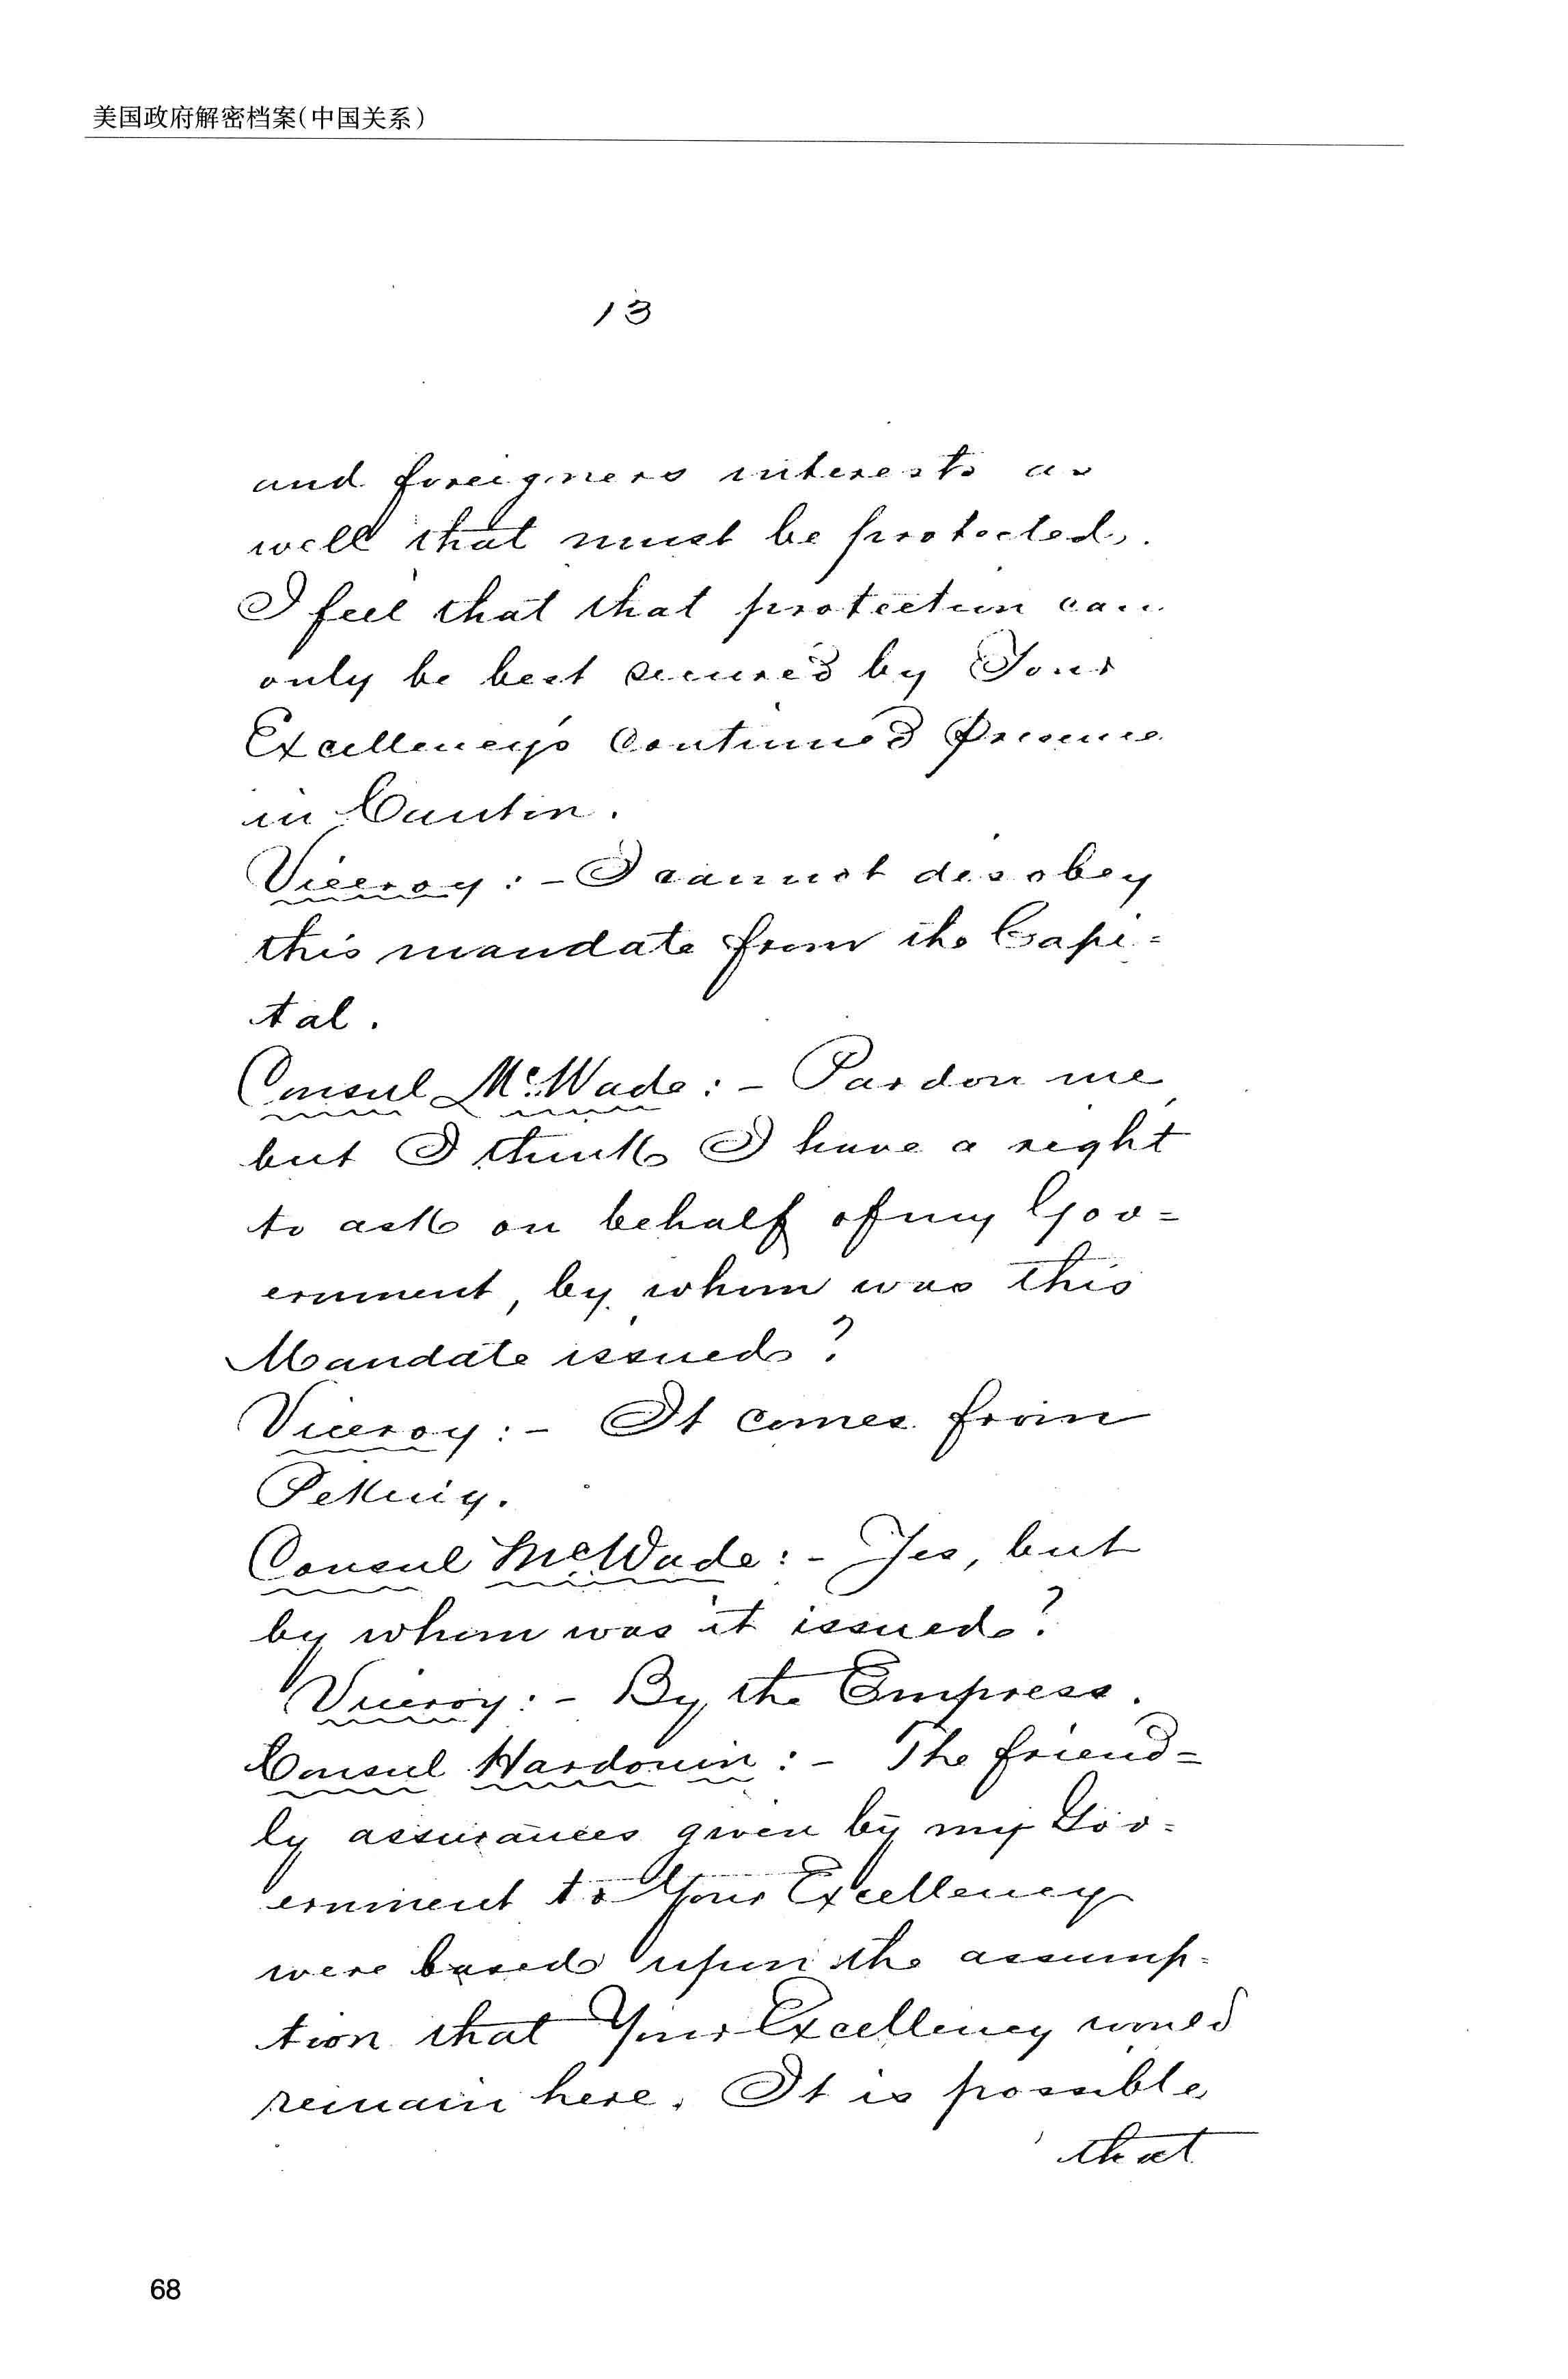 美国政府解密档案(中国关系)
13
and foreigners interests as
well that must be protected.
I feel that that protection can
only be best secured by Your
Excellency's Continued Presence
in Canton.
Viceroy:- I cannot disobey
this mandate from the Capi=
tal.
Consul McWade:- Pardon me,
but I think I have a right
to ask on behalf of my Gov=
ernment, by whom was this
Mandate issued?
Viceroy:- It comes from
Peking.
Consul McWade:- Yes, but
by whom was it issued?
Viceroy:- By the Empress.
Consul Hardouin:- The friend=
ly assurances given by my Gov=
ernment to Your Excellency
were based upon the assump-
tion that Your Excellency would
remain here. It is possible
that
68